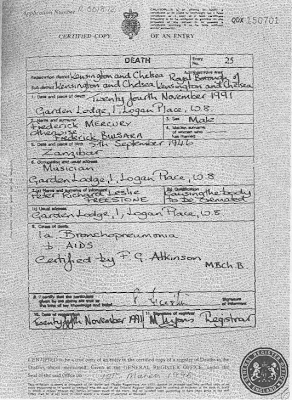 Application Number
CERTIFIED COPY OF AN ENTRY
QDX 150701
DEATH
Entry No. 25
Registration district Kensington and Chelsea
Administrative area Royal Borough of
Sub-district Kensington and Chelsea Kensington and Chelsea
1. Date and place of death Twenty fourth November 1991
Garden Lodge, 1, Logan Place, W.8.
2. Name and surname
3. Sex Male
Frederick MERCURY
otherwise
Frederick BULSARA
4. Maiden surname of woman who has married
5. Date and place of birth 5th September 1946
Zanzibar
6. Occupation and usual address
Musician
Garden Lodge, 1, Logan Place, W.8.
7.(a) Name and surname of informant
(b) Qualification
Peter Richard Leslie
FREESTONE
Causing the body
to be cremated
(c) Usual address
Garden Lodge, 1, Logan Place, W.8.
8. Cause of death
1a Bronchopneumonia
b AIDS
Certified by F G Atkinson
MB Ch.B.
9. I certify that the particulars given by me above are true to the best of my knowledge and belief
Signature of informant
10. Date of registration
11. Signature of registrar
November 1991
Registrar
CERTIFIED to be a true copy of an entry in the certified copy of a register of Deaths in the
District above mentioned. Given at the GENERAL REGISTER OFFICE, under the
Seal of the said Office